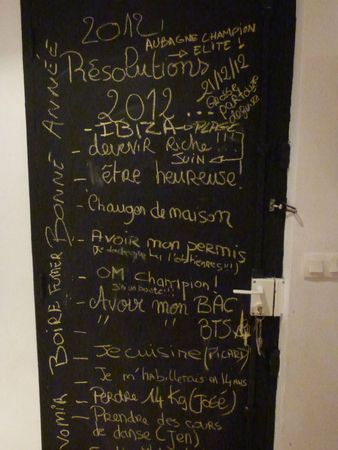 2012!
AUBAGNE CHAMPION
ELITE!
Résolutions
21/12/12
GROSSE
2012...
- IBIZA → PLAGE
- devenir Riche!!!
JUIN
- être heureuse!
- Changer de maison
- AVOIR mon permis
- OM champion!
- AVOIR mon BAC
- " " BTS
- Je cuisine (PICARD)
- Je m'habillerais en
- Perdre 14 Kg (José)
- Prendre des cours
de danse (Jen)
VOMIR BOIRE FUMER BONNE ANNÉE